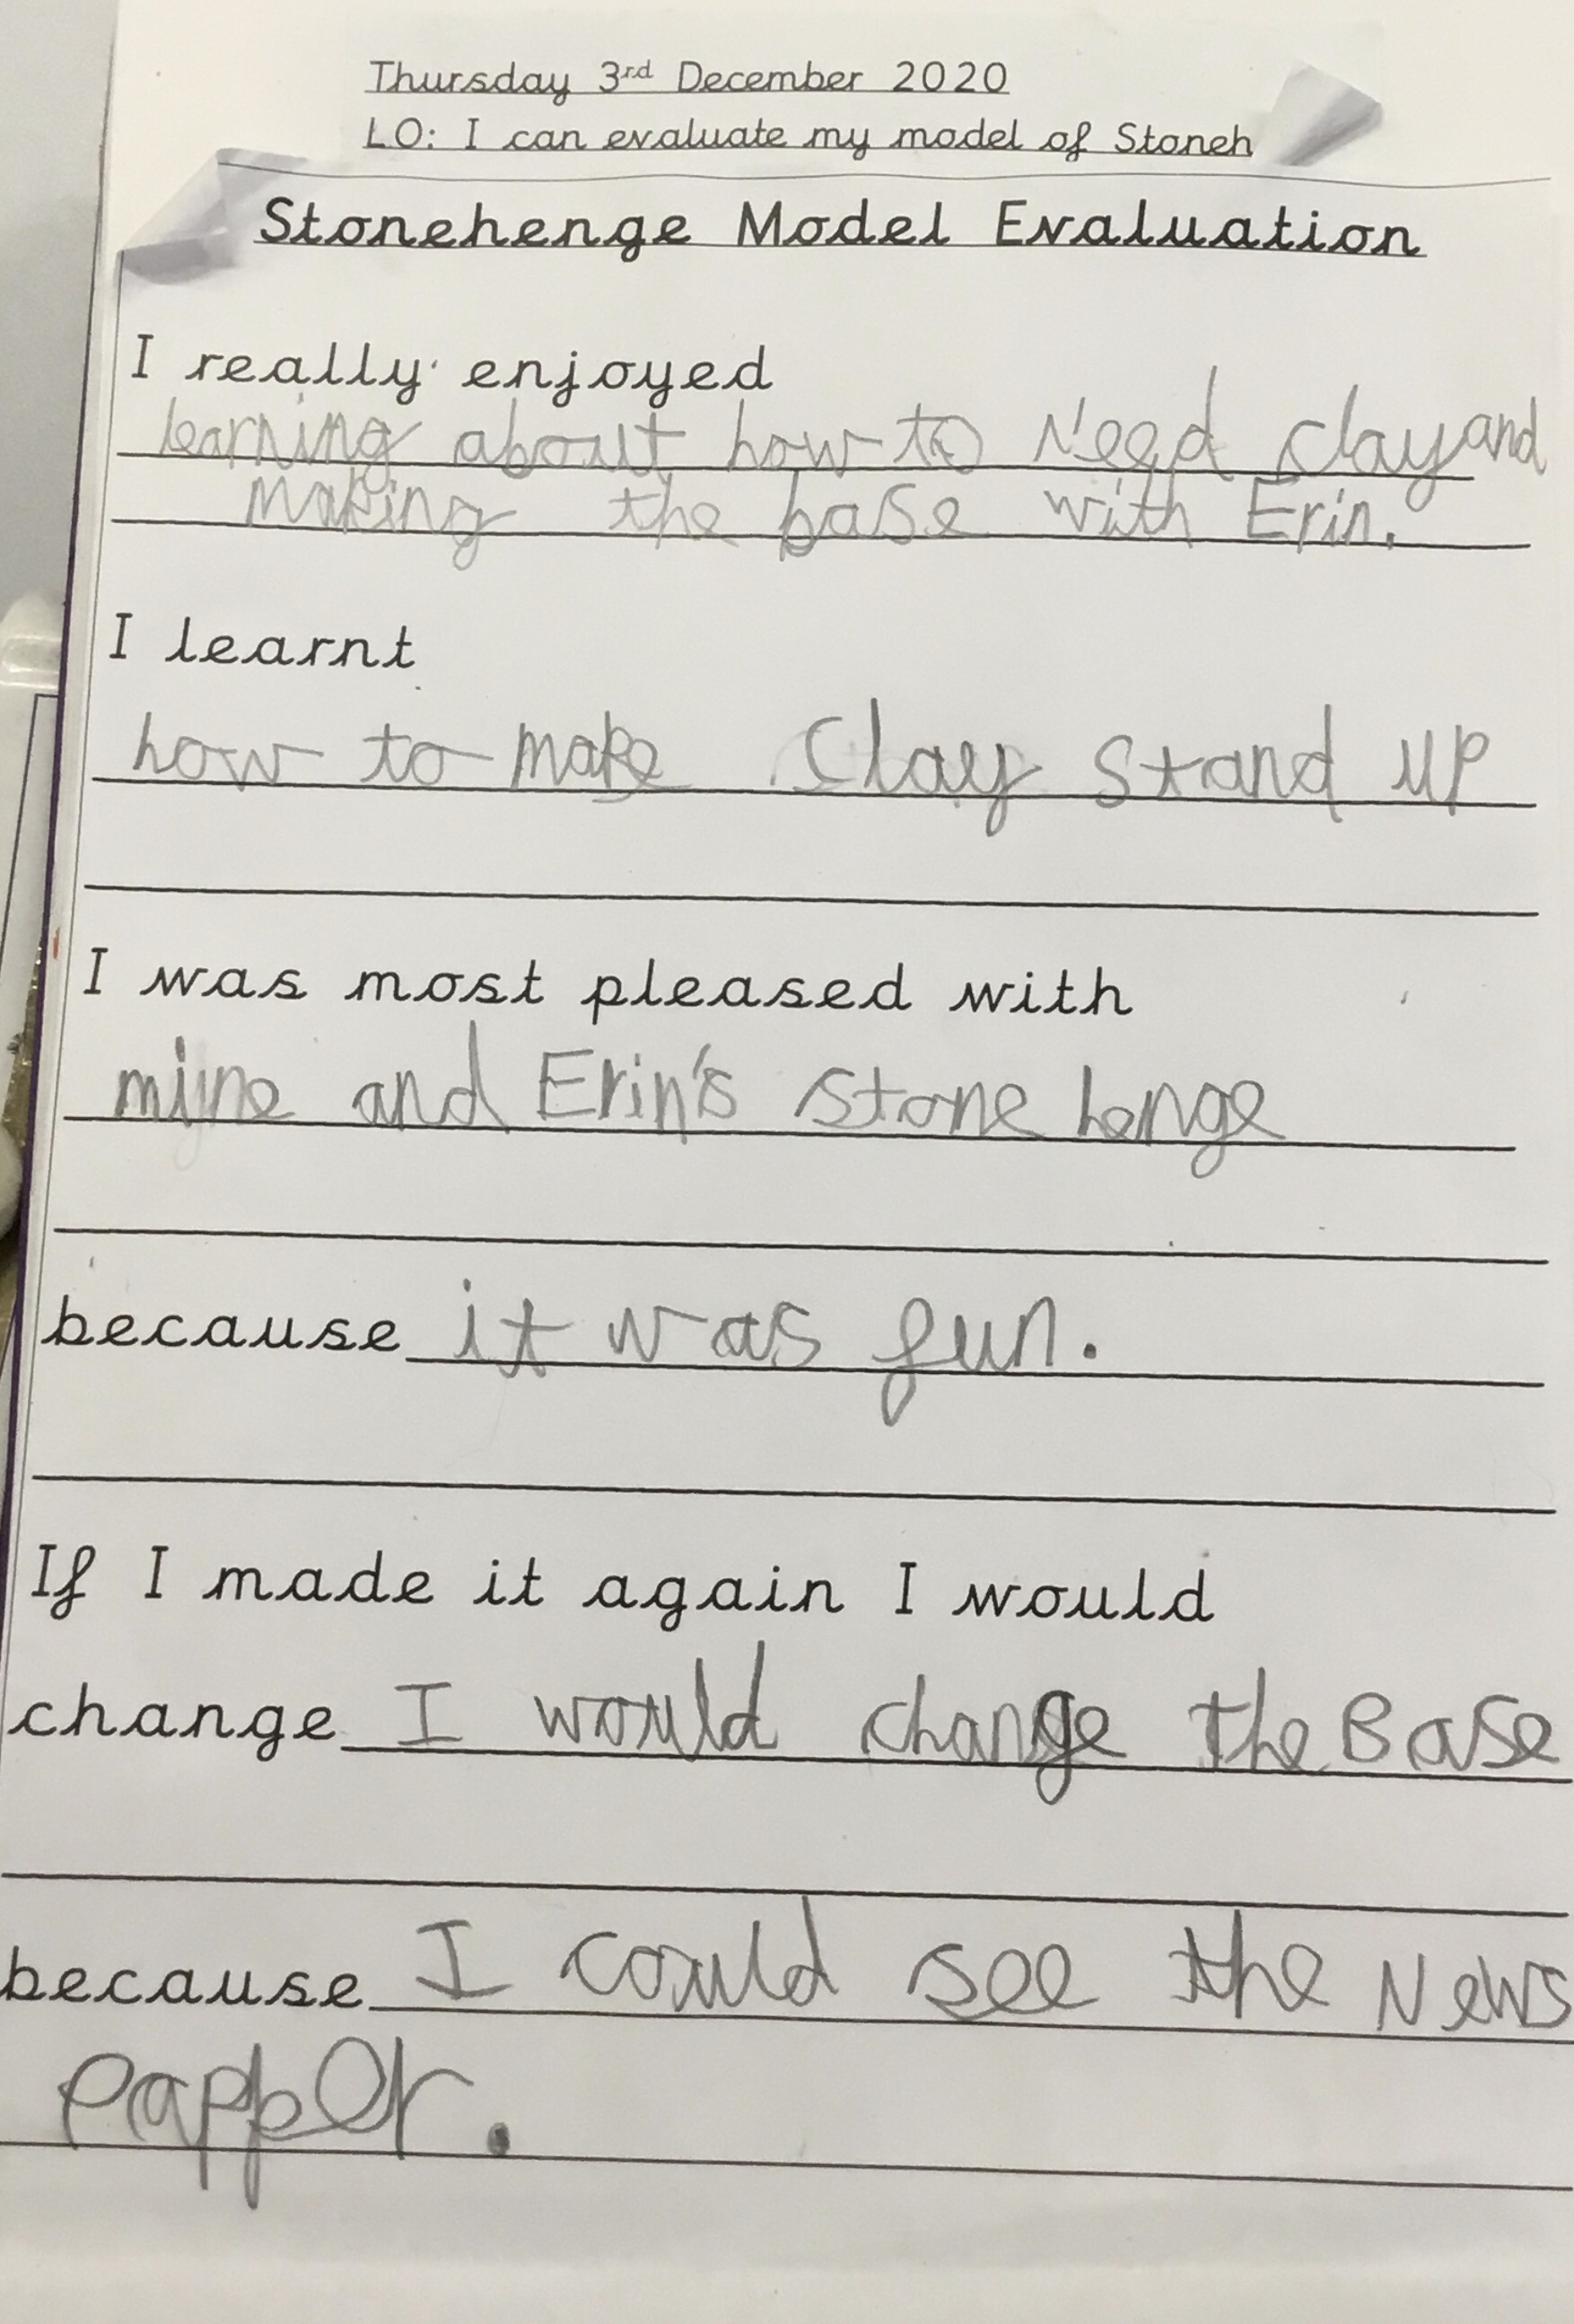 Thursday 3rd December 2020
LO: I can evaluate my model of Stoneh
Stonehenge Model Evaluation
I really enjoyed
learning about how to Need clay and
making the base with Erin.
I learnt
how to make Clay Stand up
I was most pleased with
mine and Erin's stone henge
because it was fun.
If I made it again I would
change I would change the Base
because I could see the News
Papper.